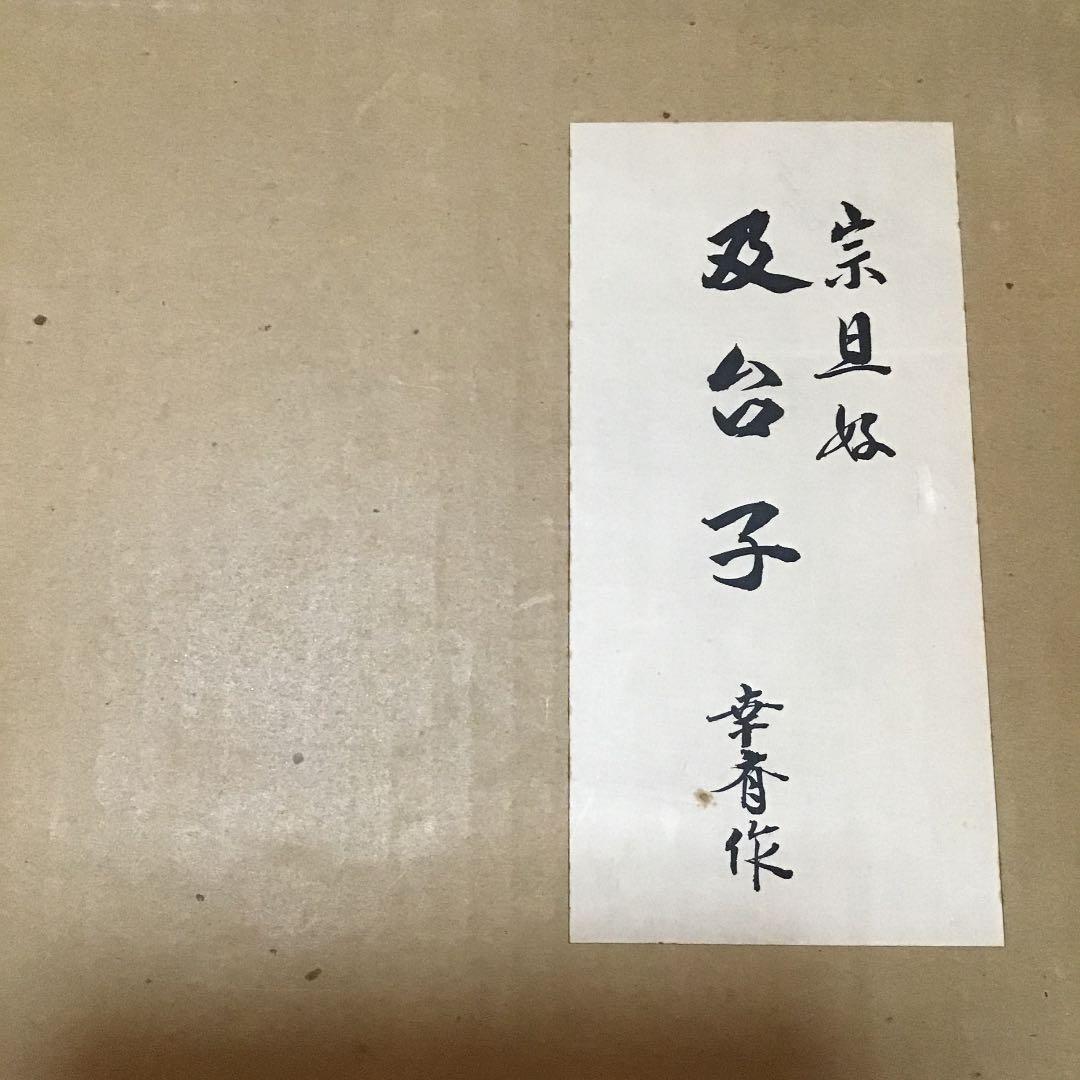 宗旦好
及台子
幸斎作